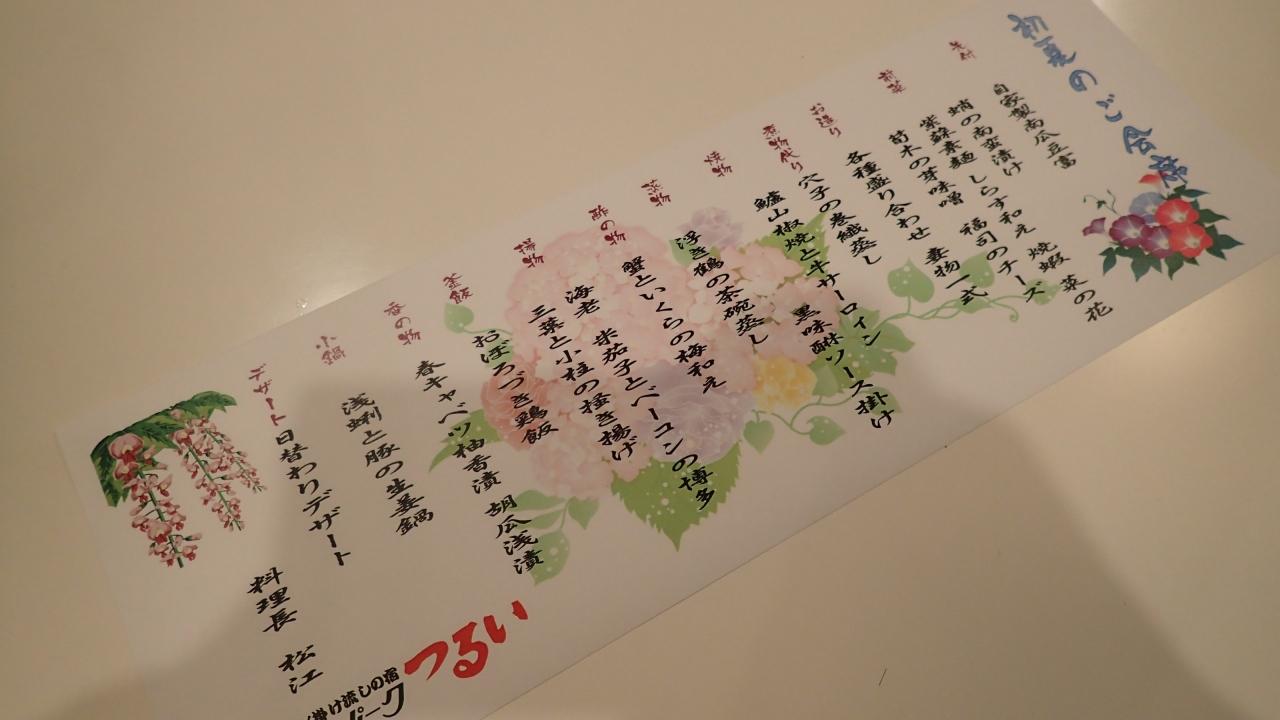 初夏のご会席
先付
自家製南瓜豆富
前菜
蛸の南蛮漬け しらす和え 焼蝦 菜の花
紫蘇素麺 福司のチーズ
筍木の芽味噌
お造り
各種盛り合わせ 妻物一式
煮物代り
穴子の巻繊蒸し
焼物
鱸山椒焼と牛サーロイン 黒味醂ソース掛け
蒸物
浮き鶴の茶碗蒸し
酢の物
蟹といくらの梅和え
揚物
海老 米茄子とベーコンの博多
三葉と小柱の掻き揚げ
釜飯
おぼろづき鶏飯
香の物
春キャベツ柚香漬 胡瓜浅漬
小鍋
浅蜊と豚の生姜鍋
デザート
日替わりデザート
料理長 松江
掛け流しの宿
パーク
つるい